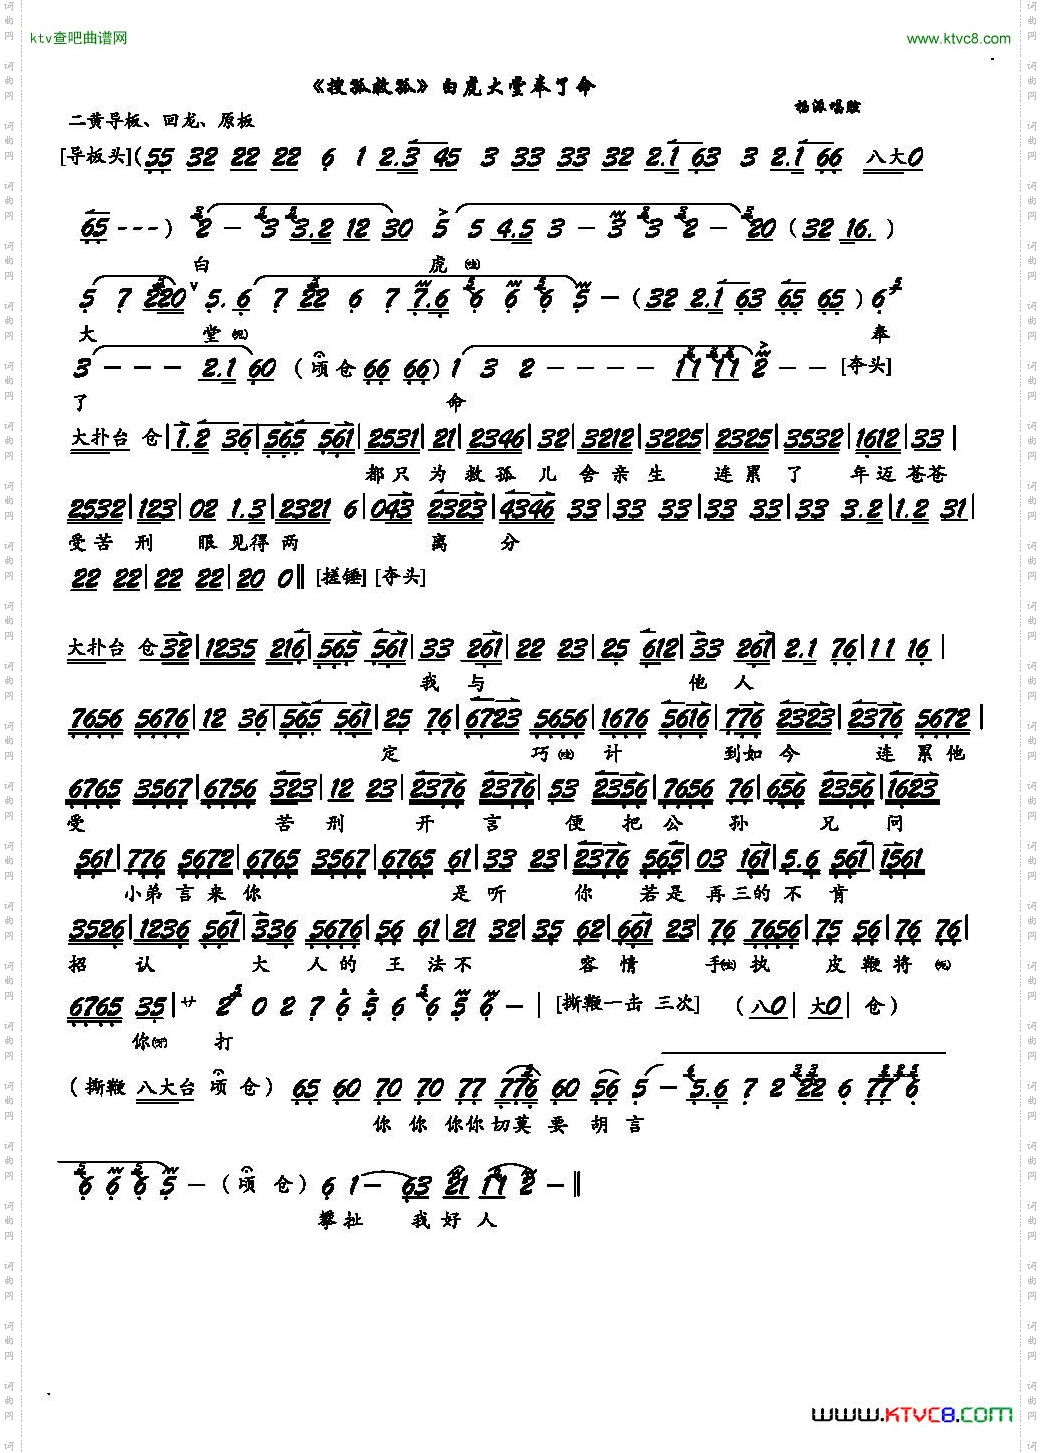 ktv查吧曲谱网
www.ktvc8.com
《搜孤救孤》白虎大堂奉了命
杨派唱腔
二黄导板、回龙、原板
[导板头](55 32 22 22 6 1 2.3 45 3 33 33 32 2.1 63 3 2.1 66 八大0
65 - - - ) 2 - 3 3.2 12 30 5 5 4.5 3 - 3 3 2 - 20 (32 16. )
白 虎(哇)
5 7 220 5. 6 7 22 6 7 7.6 6 6 6 5 - (32 2.1 63 65 65) 6
大 堂 奉
3 - - - 2.1 60 (顷仓 66 66) 1 3 2 - - - - 11 11 2 - - [夺头]
了 命
大扑台 仓|1.2 36|565 561|2531|21|2346|32|3212|3225|2325|3532|1612|33|
都只为救孤儿舍亲生 连累了 年迈苍苍
2532|123|02 1.3|2321 6|043 2323|4346 33|33 33|33 33|33 3.2|1.2 31|
受苦刑 眼见得两 离 分
22 22|22 22|20 0‖[搓锤][夺头]
大扑台 仓32|1235 216|565 561|33 261|22 23|25 612|33 261|2.1 76|11 16|
我与 他人
7656 5676|12 36|565 561|25 76|6723 5656|1676 5616|776 2323|2376 5672|
定 巧(哇)计 到如今 连累他
6765 3567|6756 323|12 23|2376 2376|53 2356|7656 76|656 2356|1623
受 苦刑 开言便把公孙兄问
561|776 5672|6765 3567|6765 61|33 23|2376 565|03 161|5.6 561|1561
小弟言来你 是听 你 若是再三的不肯
3526|1236 561|336 5676|56 61|21 32|35 62|661 23|76 7656|75 56|76 76|
招认 大人的王法不 容情 手(哇)执 皮鞭将
6765 35|サ 2 0 2 7 6 5 6 6 5 6 - |[撕鞭一击 三次] (八0|大0|仓)
你 打
(撕鞭 八大台 顷仓) 65 60 70 70 77 776 60 56 5 - 5.6 7 2 22 6 77 6
你你你你切莫要胡言
6 6 6 5 - (顷仓) 6 1 - 63 21 11 2 - ‖
攀扯 我好人
www.KTVC8.COM